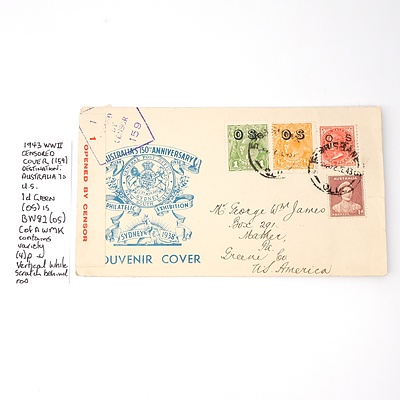 1943 WWII
CENSORED
COVER (159)
DESTINATION:
AUSTRALIA to
U.S.
1d GREEN
(OS) is
BW82 (OS)
CofA WMK
contains
variety
(4)p
Vertical white
Scratch behind
roo
1 OPENED BY CENSOR
1
CENSOR
159
AUSTRALIA'S 150TH ANNIVERSARY
SYDNEY
PHILATELIC EXHIBITION
SYDNEY 1938
OUVENIR COVER
O S
O S
O S
Mr. George Wm James
Box 291.
Mather,
Pa.
Greene Co
US America